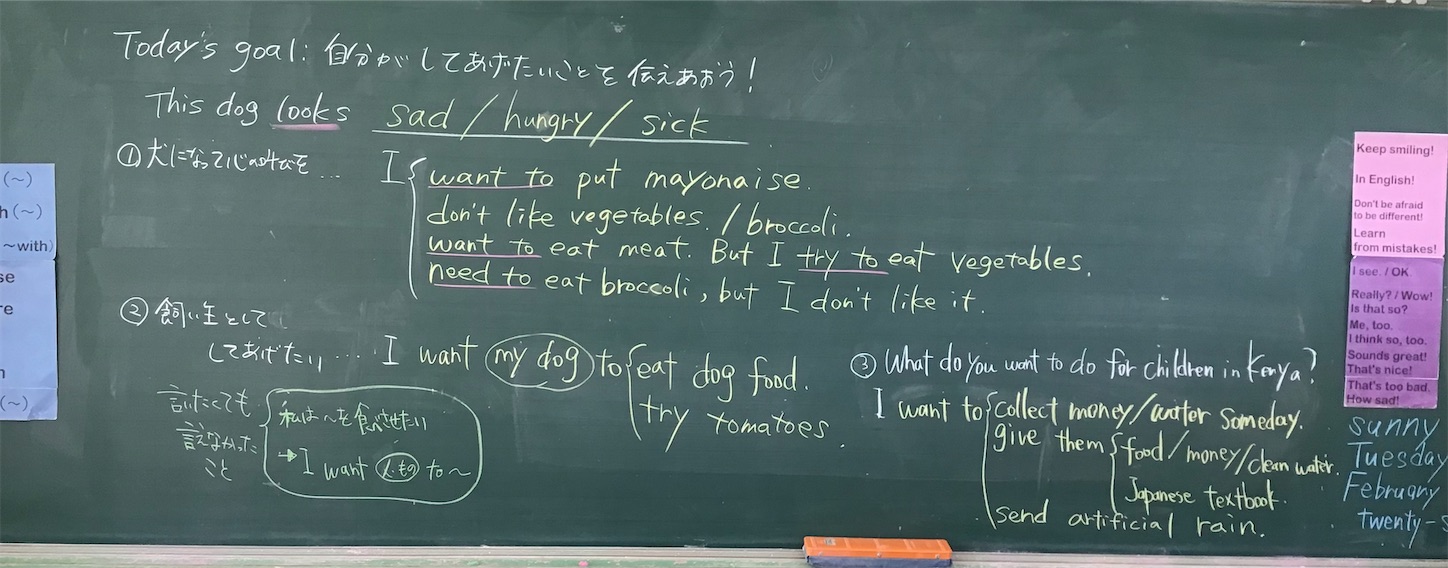 Today's goal: 自分がしてあげたいことを伝えあおう!
This dog looks sad / hungry / sick
①犬になって心の叫びを...
I want to put mayonaise.
don't like vegetables. / broccoli.
want to eat meat. But I try to eat vegetables.
need to eat broccoli, but I don't like it.
②飼い主として
してあげたい... I want my dog to eat dog food.
try tomatoes.
言いたくても
言えなかった
こと
私は〜を食べさせたい
→I want 人・もの to〜
③What do you want to do for children in Kenya?
I want to collect money/water someday.
give them food/money/clean water.
Japanese textbook.
send artificial rain.
(~)
h (~)
~with)
se
re
n
(~)
Keep smiling!
In English!
Don't be afraid
to be different!
Learn
from mistakes!
I see. / OK.
Really? / Wow!
Is that so?
Me, too.
I think so, too.
Sounds great!
That's nice!
That's too bad.
How sad!
sunny
Tuesday
February
twenty-s